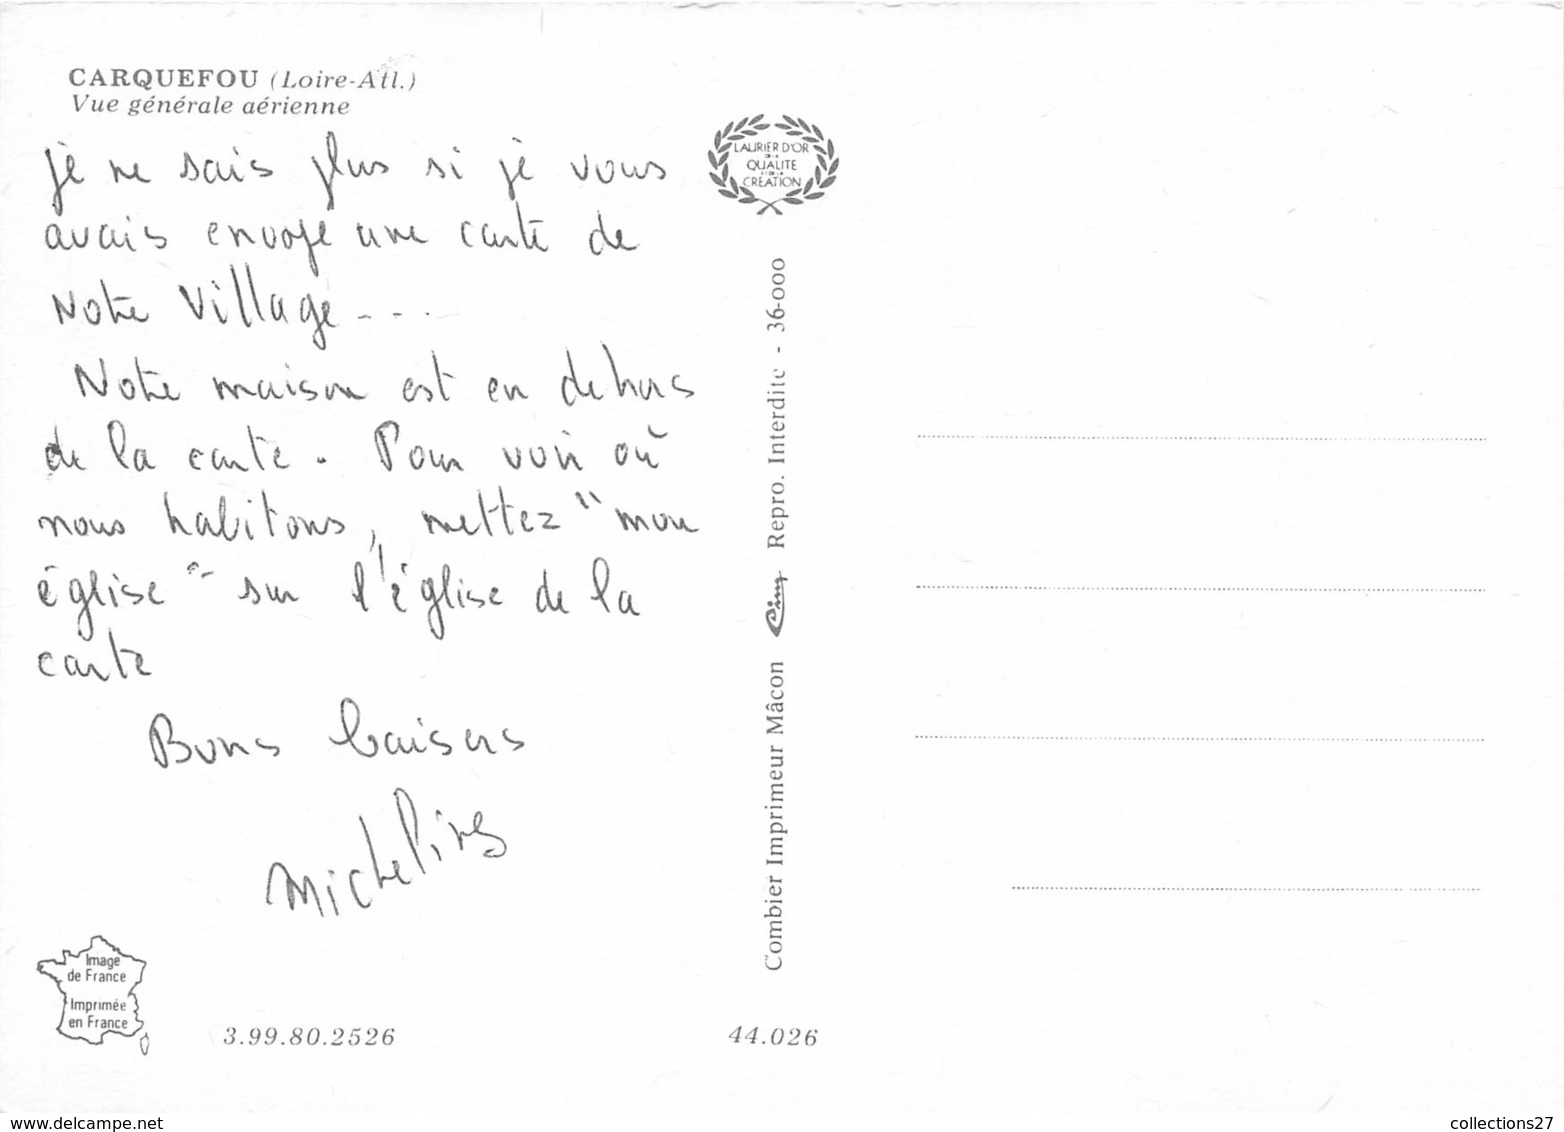 CARQUEFOU (Loire-Atl.)
Vue générale aérienne
je ne sais plus si je vous
avais envoyé une carte de
Notre Village - - .
Notre maison est en dehors
de la carte. Pour voir où
nous habitons, mettez "mon
église" sur l'église de la
carte
Bons baisers
Micheline
LAURIER D'OR
DE LA
QUALITE
ET DE LA
CREATION
Combier Imprimeur Mâcon Cim Repro. Interdite - 36-000
Image
de France
Imprimée
en France
3.99.80.2526
44.026
www.delcampe.net
collections27